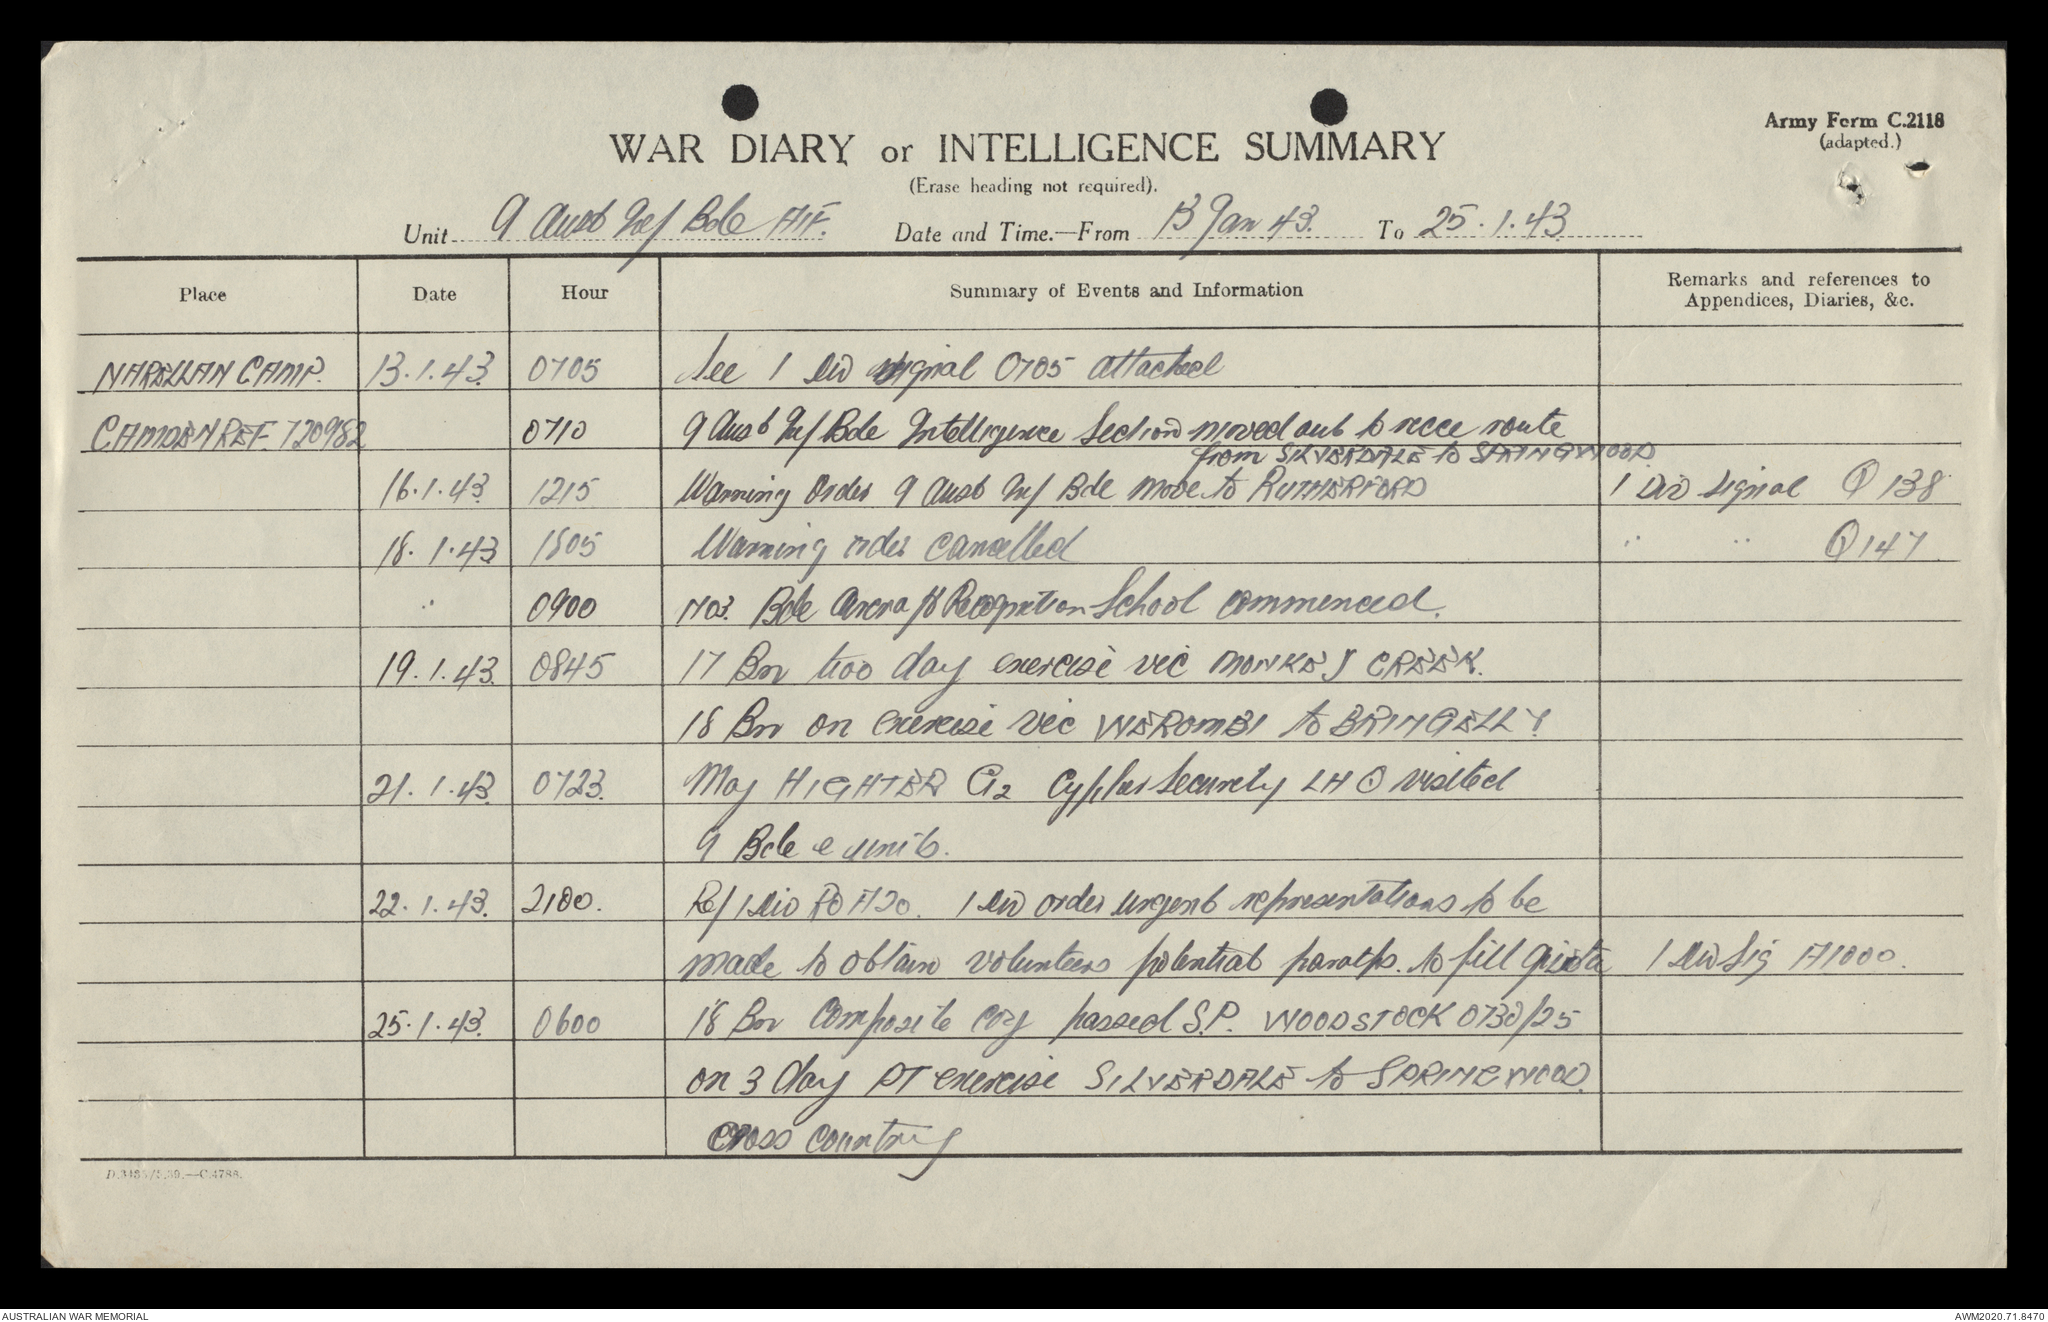 Army Form C.2118
(adapted.)
WAR DIARY or INTELLIGENCE SUMMARY
(Erase heading not required).
Unit 9 Aust Inf Bde AIF. Date and Time.—From 13 Jan 43. To 25.1.43.
Place Date Hour Summary of Events and Information Remarks and references to Appendices, Diaries, &c.
NARELLAN CAMP. 13.1.43. 0705 See 1 Div signal 0705 attached
CAMDEN REF. 720982 0710 9 Aust Inf Bde Intelligence Section moved out to recce route
from SILVERDALE to SPRINGWOOD.
16.1.43 1215 Warning Order 9 Aust Inf Bde move to RUTHERFORD 1 Div signal Q 138
18.1.43 1805 Warning order cancelled " " Q147
" 0900 No3. Bde Aircraft Recognition School commenced.
19.1.43. 0845 17 Bn two day exercise vic MONKEY CREEK.
18 Bn on exercise vic WEROMBI to BRINGELLY
21.1.43. 0723. Maj HIGHTER G2 Cypher Security LHQ visited
9 Bde & units.
22.1.43. 2100. Ref 1 Div RO A20. 1 Div order urgent representations to be
made to obtain volunteers potential paratps. to fill quota 1 Div Sig A1000.
25.1.43. 0600 18 Bn Composite coy passed S.P. WOODSTOCK 0730/25
on 3 day PT exercise SILVERDALE to SPRINGWOOD.
cross country
D.3485/5.39.—C.4788.
AUSTRALIAN WAR MEMORIAL AWM2020.71.8470